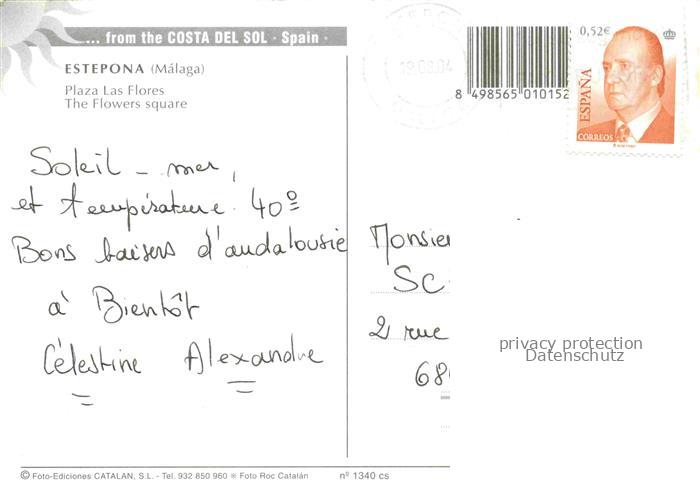 ... from the COSTA DEL SOL · Spain ·
ESTEPONA (Málaga)
Plaza Las Flores
The Flowers square
19.08.04
8 498565 010152
0,52€
ESPAÑA
CORREOS
Soleil - mer,
et température 40º
Bons baisers d'andalousie
à Bientôt
Célestine Alexandre
Monsie
SC
2 rue
68
privacy protection
Datenschutz
© Foto-Ediciones CATALAN, S.L. - Tel. 932 850 960 ※ Foto Roc Catalán nº 1340 cs